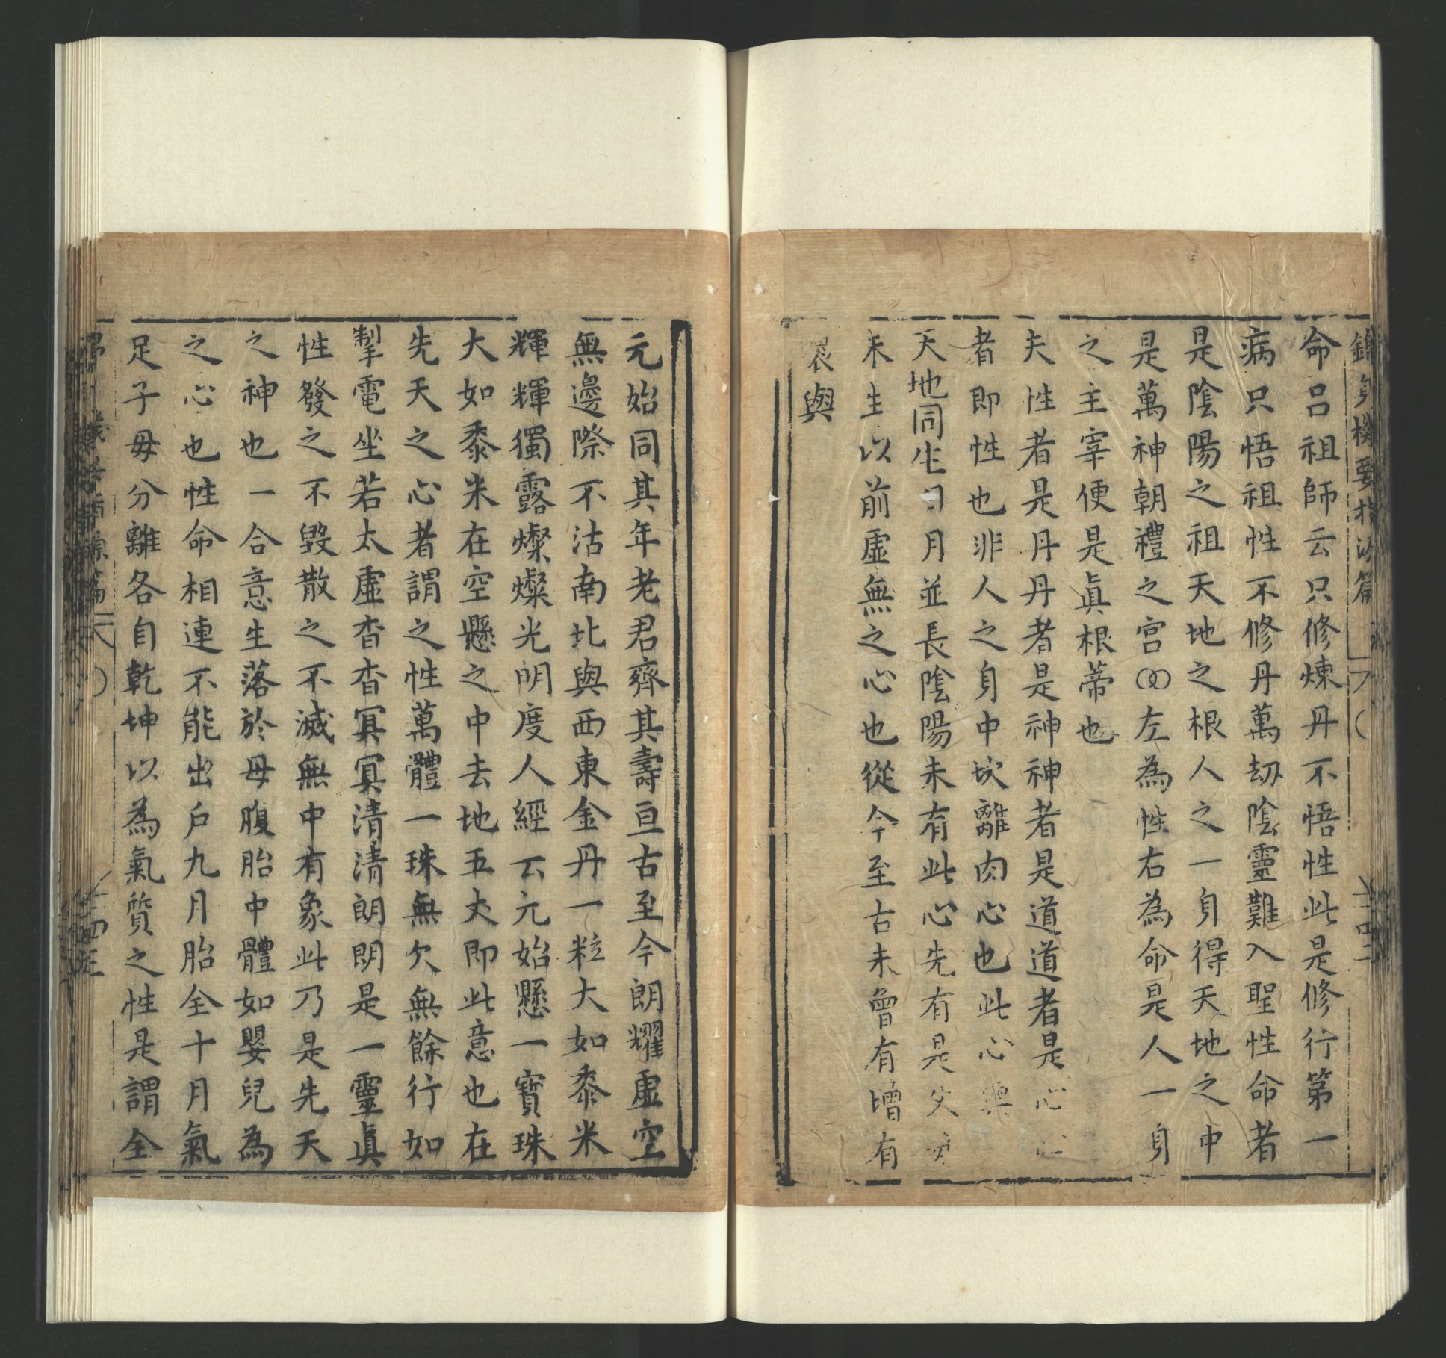 命呂祖師云只修煉丹不悟性此是修行第一
病只悟祖性不修丹萬劫陰靈難入聖性命者
是陰陽之祖天地之根人之一身得天地之中
是萬神朝禮之宮〇〇左為性右為命是人一身
之主宰便是真根蒂也
夫性者是丹丹者是神神者是道道者是心心
者即性也非人之身中坎離肉心也此心與
天地同生日月並長陰陽未有此心先有是父母
未生以前虛無之心也從今至古未曾有增有
與
元始同其年老君齊其壽亘古至今朗耀虛空
無邊際不沽南北與西東金丹一粒大如黍米
輝輝獨露燦燦光明度人經云元始懸一寶珠
大如黍米在空懸之中去地五丈即此意也在
先天之心者謂之性萬體一珠無欠無餘行如
掣電坐若太虛杳杳冥冥清清朗朗是一靈真
性發之不毀散之不滅無中有象此乃是先天
之神也一合意生落於母腹胎中體如嬰兒為
之心也性命相連不能出戶九月胎全十月氣
足子母分離各自乾坤以為氣質之性是謂全